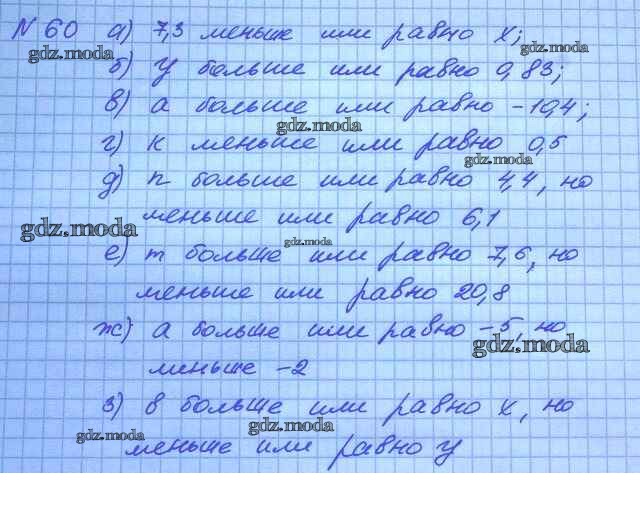 N 60 а) 7,3 меньше или равно x;
gdz.moda
б) y больше или равно 0,83;
gdz.moda
в) a больше или равно -10,4;
gdz.moda
г) к меньше или равно -0,5
gdz.moda
д) n больше или равно 4,4, но
меньше или равно 6,1
gdz.moda
gdz.moda
е) m больше или равно 7,6, но
меньше или равно 20,8
ж) a больше или равно -5, но
gdz.moda
меньше -2
з) в больше или равно x, но
gdz.moda
gdz.moda
меньше или равно y